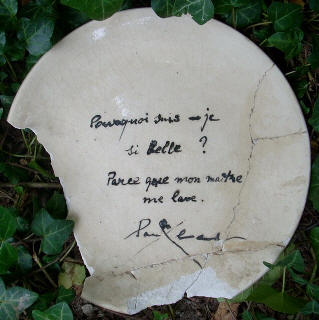 Pourquoi suis-je
si belle ?
Parce que mon maître
me lave.
Paul Éluard